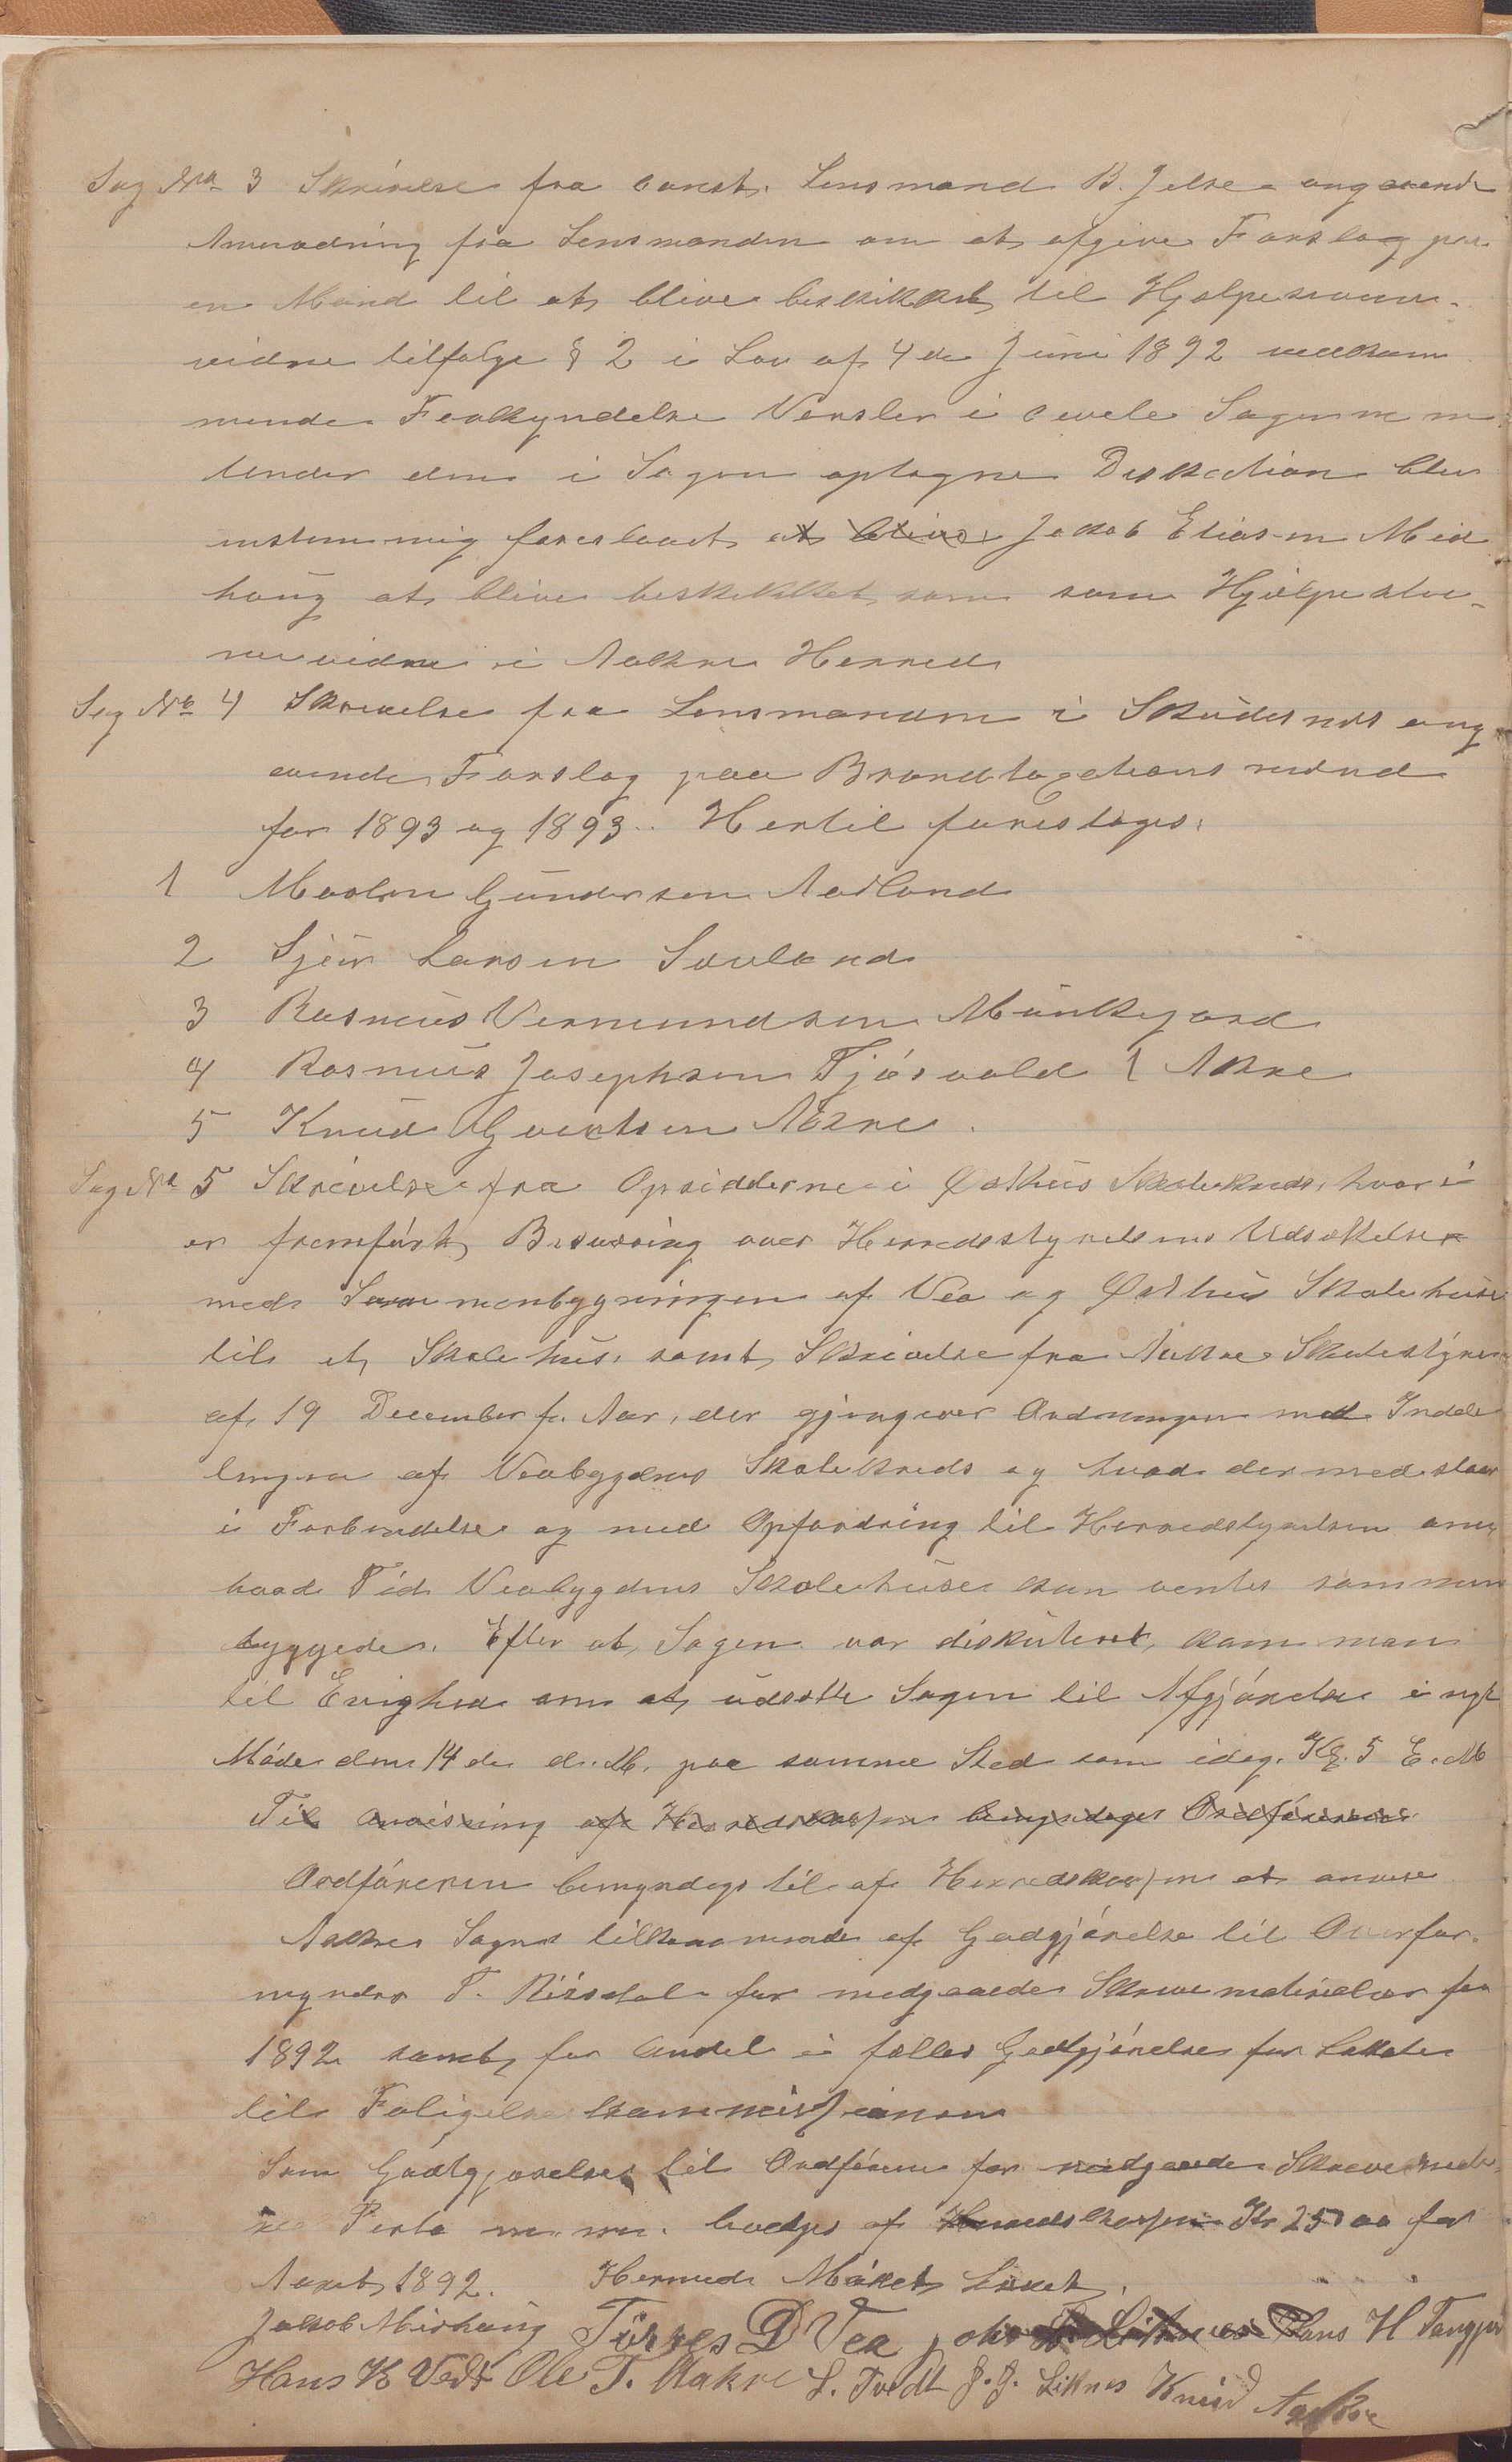 Sag No 3 Skrivelse fra const. Lensmand B. Jelse angaaende
Anmodning fra Lensmanden om at afgive Forslag paa
en Mand til at blive beskikket til Hjelpestævne-
vidne tilfølge § 2 i Lov af 4de Juni 1892 vedkom
mende Forkyndelse Varsler i civile Sager m m
Under den i Sagen optagne Diskution blev
enstemmig foreslaaet at blive Jakob Eliassen Mid
haug at blive beskikket som som Hjælpestæv-
nevidne i Aakre Herred
Sag No 4 Skrivelse fra Lensmanden i Skudesnes ang
aaende Forslag paa Brandtaxationsmænd
for 1893 og 1893. Hertil foreslages:
1 Gundersen Aadland
2 Sjur Larsen Sævland
3 Rasmus Vermundsen Munkejord
4 Rasmus Josephsen Tjøsvold Akre
5 Knud Govertsen Akre.
Sag No 5 Skrivelse fra Opsidderne i Østhus Skolekreds, hvori
er fremført Besværing over Herredsstyrelsens Udsættelse
med Sammenbygningen af Vea og Østhus Skolehuse
til et Skolehus, samt Skrivelse fra Aakre Skolestyre
af 19 December f. Aar, der gjengiver Ordningen med Indde
lingen af Veabygdens Skolekreds og hvad dermed staar
i Forbindelse og med Opfordring til Herredstyrelsen om
hvad Tid Veabygdens Skolehuse kan ventes sammen
byggede. Efter at Sagen var diskuteret, kom man
til Enighed om at udsætte Sagen til Afgjørelse i nyt
Møde den 14de d. M. paa samme Sted som idag. Kl. 5 E. M
Til Anvisning af Herredskassen bemyndiges Ordføreren
Ordføreren bemyndiges til af Herredskassen at anvise
Aakre Sogns tilkommende af Godtgjørelse til Overfor-
mynder T. for medgaaede Skrivematerialier for
1892 samt for Andel i fælles Godtgjørelse for Lokale
til Foligelseskommissionen
Som Godtgjørelse til Ordføreren for medgaaede Skrivemate-
Porto m. m. af Herredskassen Kr 25 00 for
Aaret 1892. Hermed Mødet Lukket.
Jakob Midhaug Tørres D Vea John Hans H
Hans K Vedø Ole T. Aakre L. Tvedt J. J. Liknes Knud Aakre